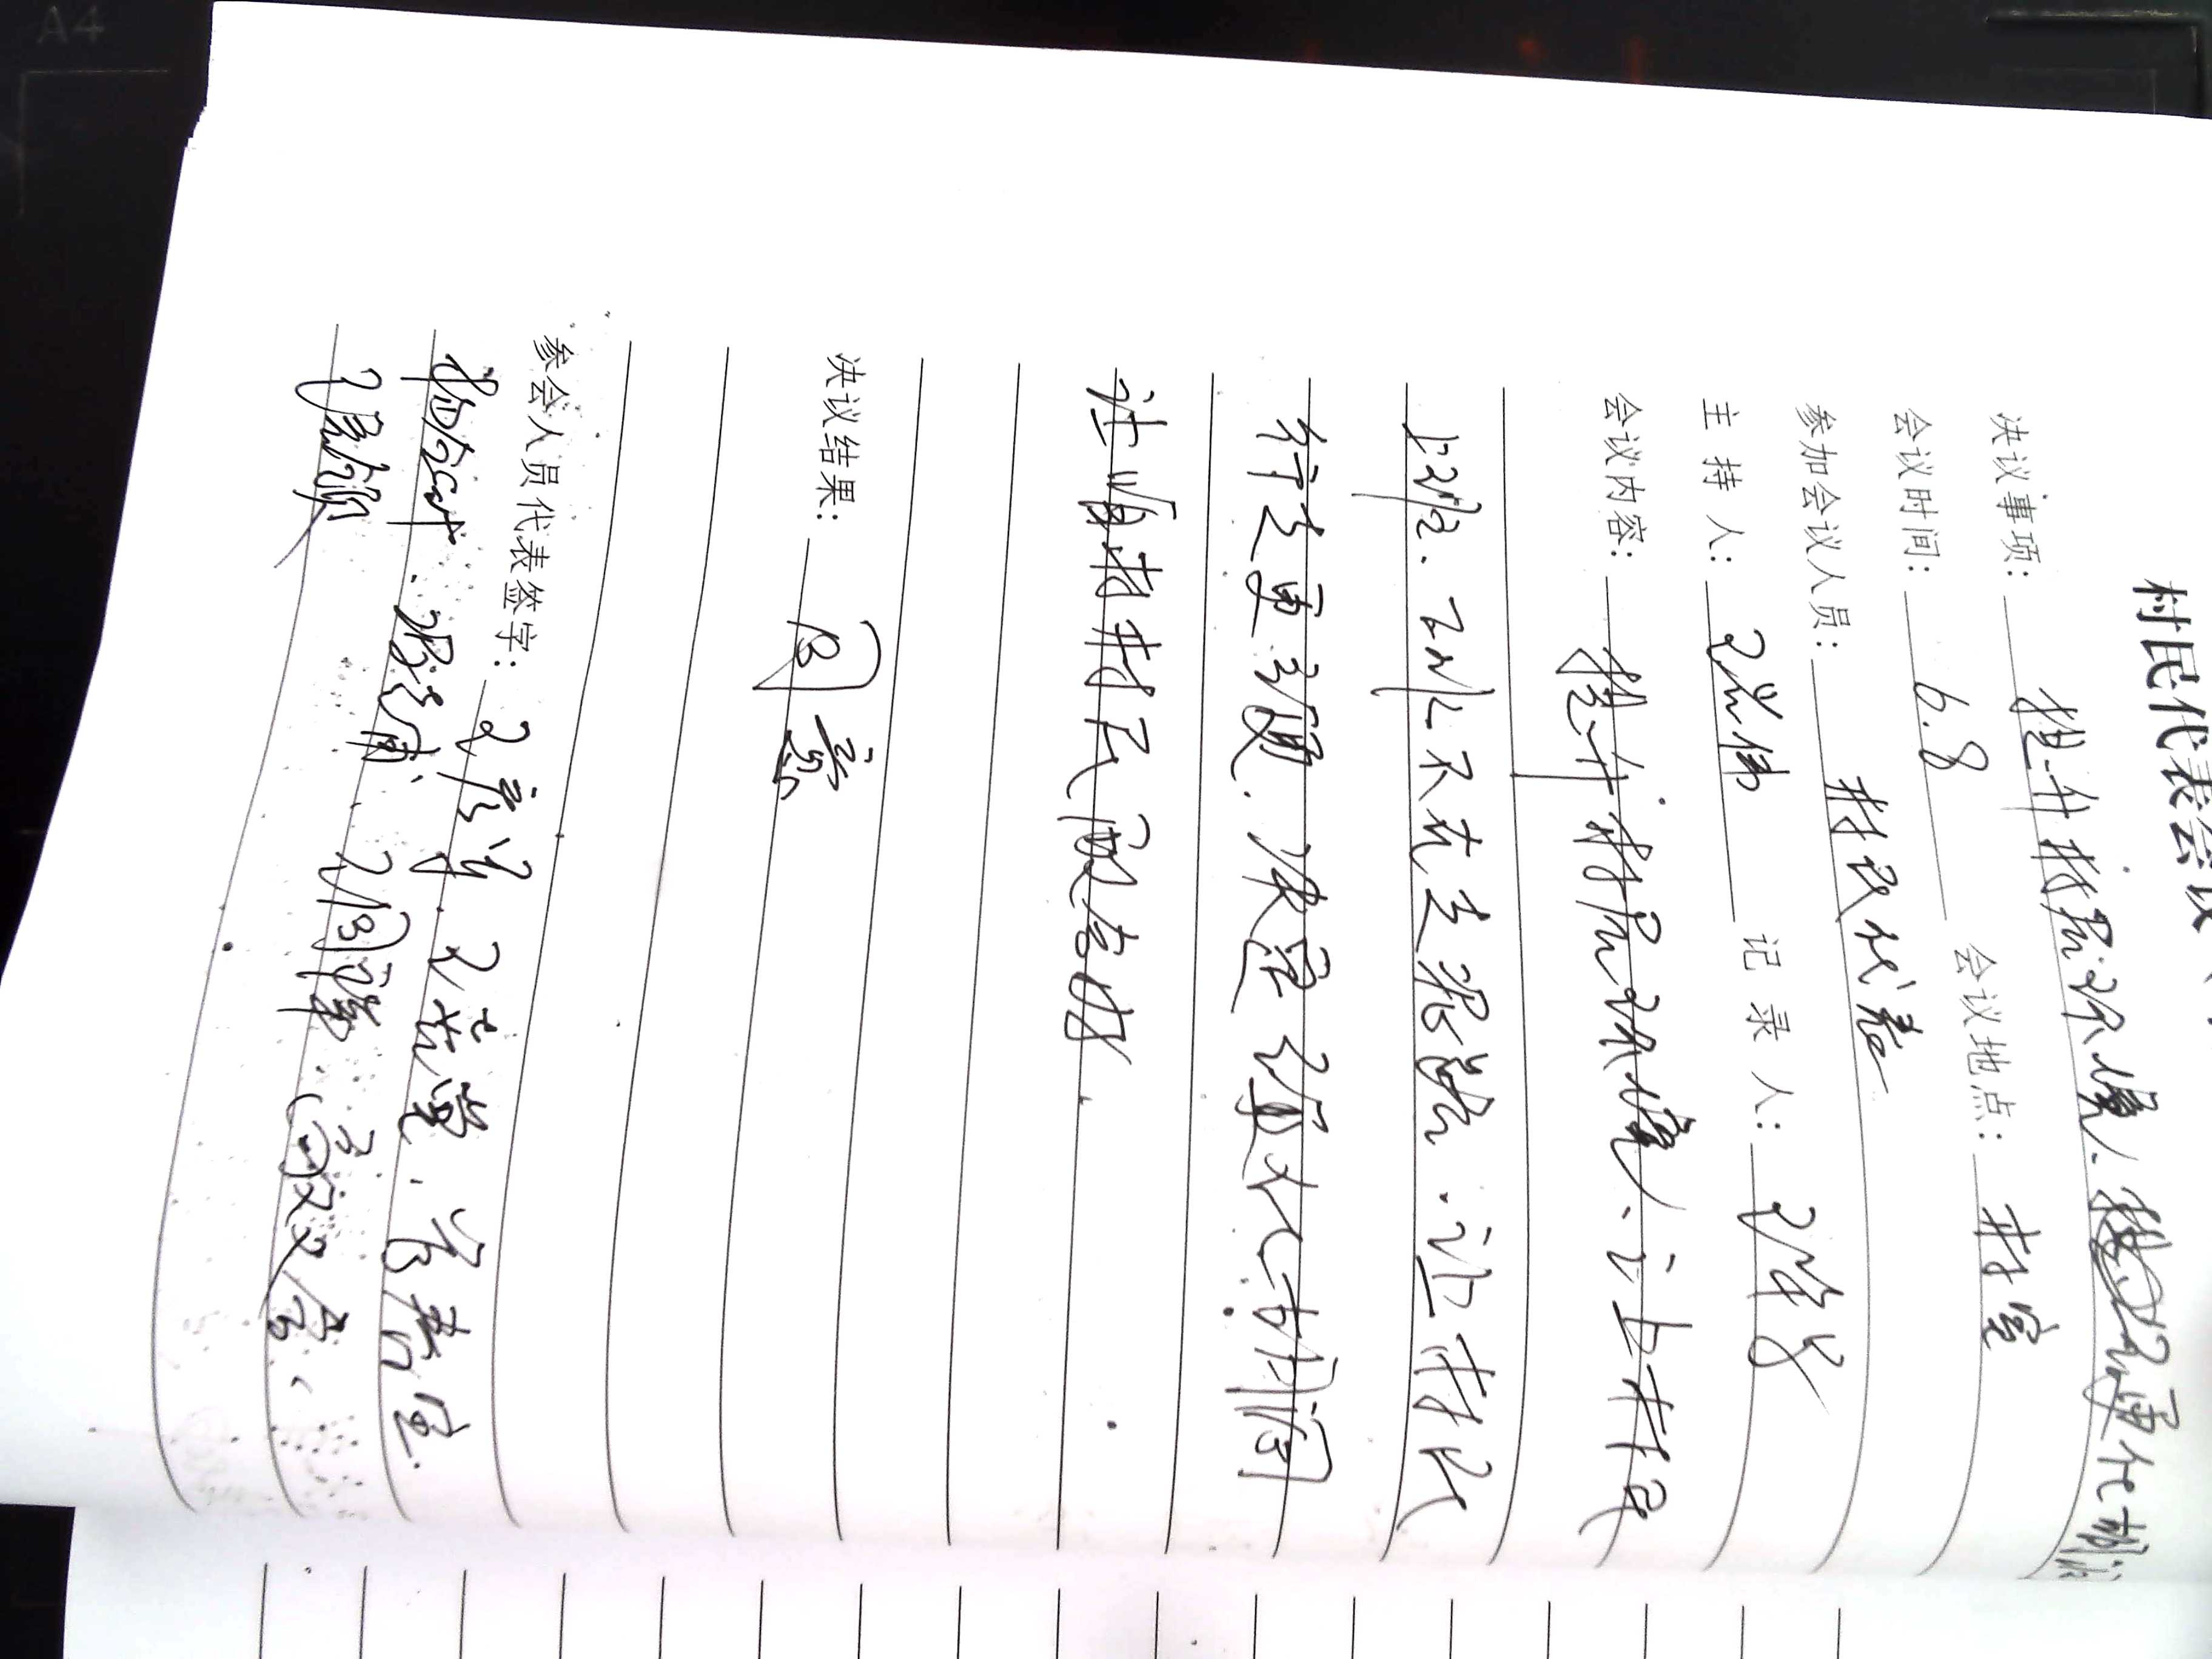 村民代表会议
决议事项: 提升村居环境、硬化胡同
会议时间: 6.8 会议地点: 村室
参加会议人员: 村民代表
主持人: 王岩伟 记录人:
会议内容: 提升村居环境、让村民
上班、下班不在走泥路.让村民
行走更方便.决定硬化胡同
让咱村村民
决议结果: 同意
参会人员代表签字: 王彦军、王喜堂、
王同祥、高文会、
A4